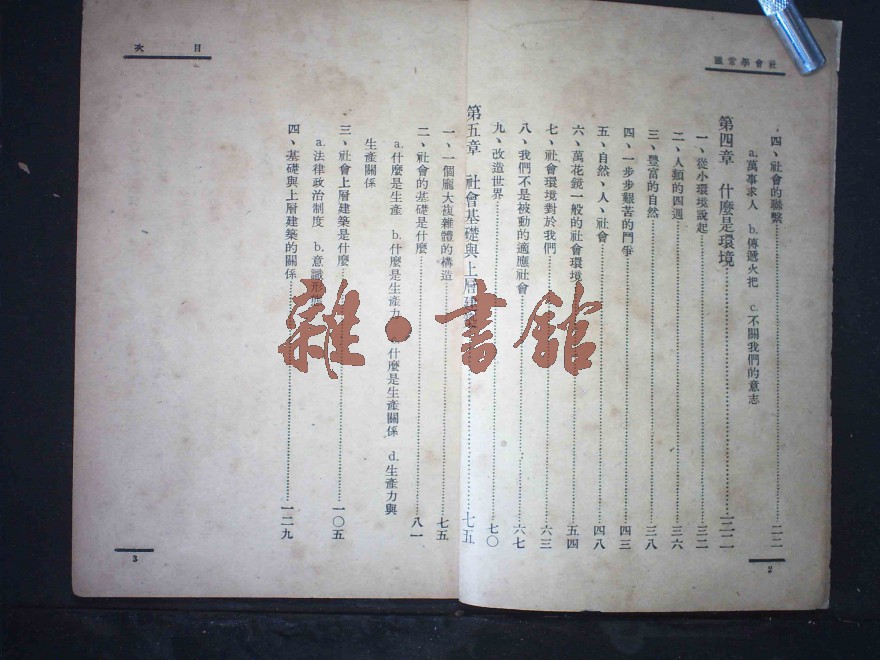 社會學常識
四、社會的聯繫……二二
a.萬事求人 b.傳遞火把 c.不關我們的意志
第四章 什麼是環境……三二
一、從小環境說起……三二
二、人類的四週……三六
三、豐富的自然……三八
四、一步步艱苦的鬥爭……四三
五、自然、人、社會……四八
六、萬花鏡一般的社會環境……五四
七、社會環境對於我們……六三
八、我們不是被動的適應社會……六七
九、改造世界……七〇
2
目次
第五章 社會基礎與上層建……七五
一、一個龐大複雜體的構造……七五
二、社會的基礎是什麼……八一
a.什麼是生產 b.什麼是生產力 什麼是生產關係 d.生產力與
生產關係
三、社會上層建築是什麼……一〇五
a.法律政治制度 b.意識形
四、基礎與上層建築的關係……一二九
3
雜·書館